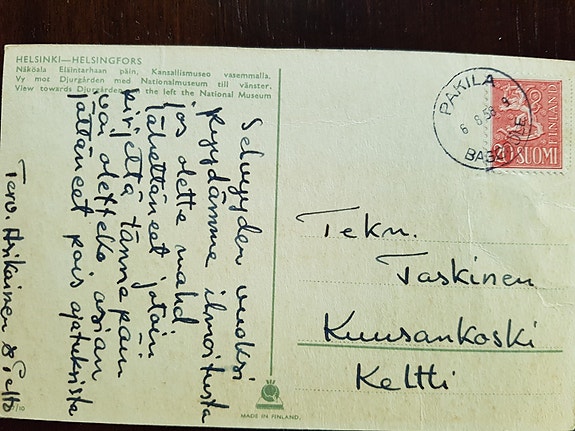 HELSINKI—HELSINGFORS
Näköala Eläintarhaan päin, Kansallismuseo vasemmalla.
Vy mot Djurgården med Nationalmuseum till vänster.
View towards Djurgården the left the National Museum
Selvyyden vuoksi
pyydämme ilmoitusta
jos olette mahd.
lähettäneet jotain
kirjettä tännepäin
vai oletteko asian
jättäneet pois ajatuksista
Terv. Asikainen &
MADE IN FINLAND.
PAKILA
6 8 58
SUOMI
FINLAND
Tekn.
Taskinen
Kuusankoski
Keltti